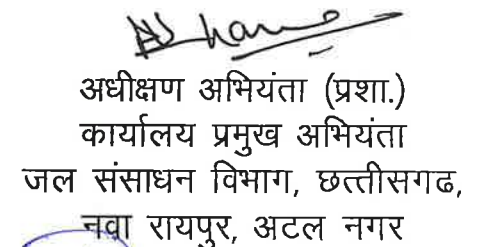 अधीक्षण अभियंता (प्रशा.)
कार्यालय प्रमुख अभियंता
जल संसाधन विभाग, छत्तीसगढ,
नवा रायपुर, अटल नगर